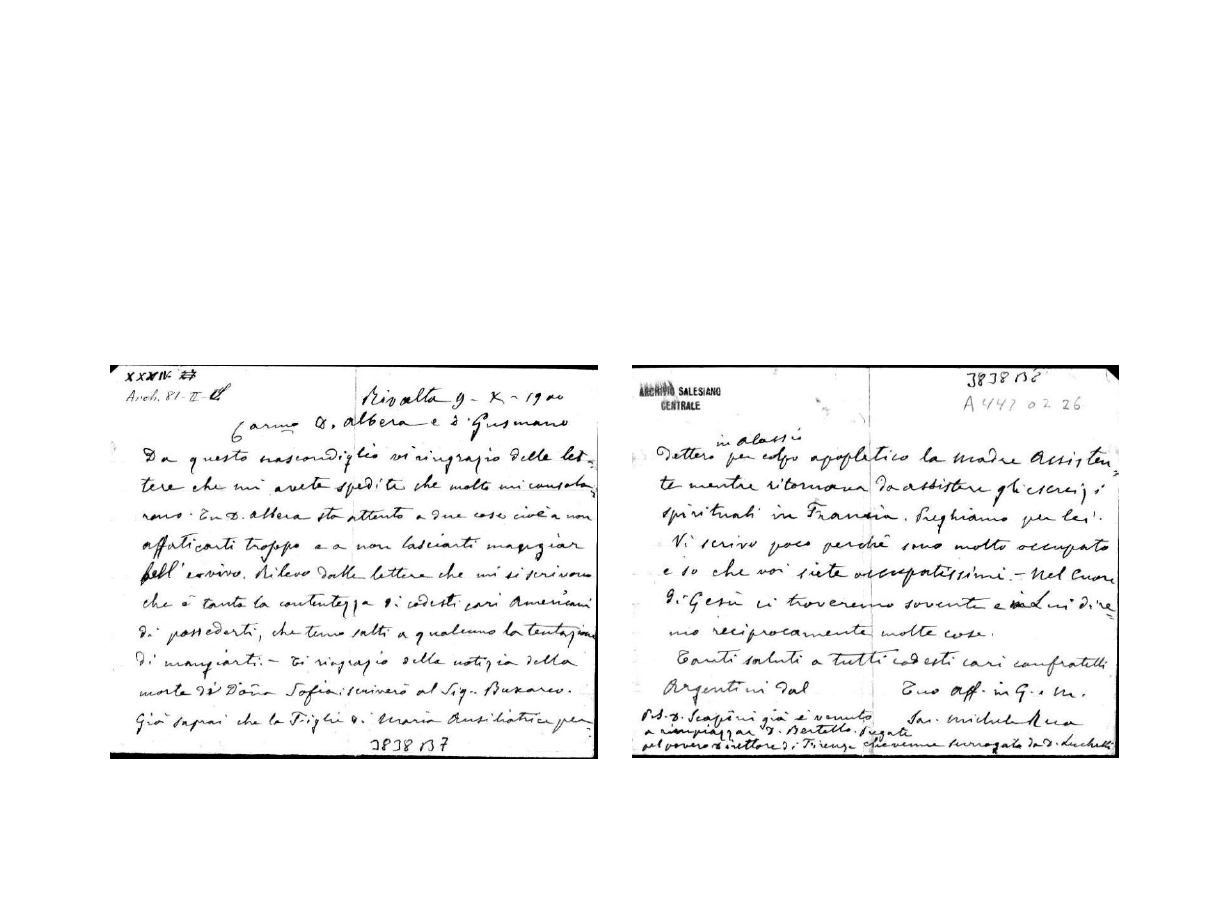 XXXIV 27
Arch. 81-II-
Rivalta 9 - X - 1900
Carmo D. Albera e D. Gusmano
Da questo nascondiglio vi ringrazio delle let-
tere che mi avete spedite che molto mi consola-
rono. Tu D. Albera sta attento a due cose cioè a non
affaticarti troppo e a non lasciarti mangiar
bell'e vivo. Rilevo dalle lettere che mi si scrivono
che è tanta la contentezza di codesti cari Americani
di possederti, che temo salti a qualcuno la tentazione
di mangiarti. - Ti ringrazio della notizia della
morte di Doña Sofia: scriverò al Sig. Buxareo.
Già saprai che le Figlie di Maria Ausiliatrice per-
3838 B7
ARCHIVIO SALESIANO
CENTRALE
3838 B8
A 447 02 26
in Alassio
dettero per colpo apopletico la Madre Assisten-
te mentre ritornava da assistere gli esercizi
spirituali in Francia. Preghiamo per lei.
Vi scrivo poco perchè sono molto occupato
e so che voi siete occupatissimi. - Nel Cuore
di Gesù ci troveremo sovente e in Lui dire-
mo reciprocamente molte cose.
Tanti saluti a tutti codesti cari confratelli
Argentini dal Tuo aff. in G. e M.
Sac. Michele Rua
P.S. D. Scappini già è venuto
a rimpiazzar D. Bertello. Pregate
pel povero Direttore di Firenze che venne surrogato da D. Luchelli